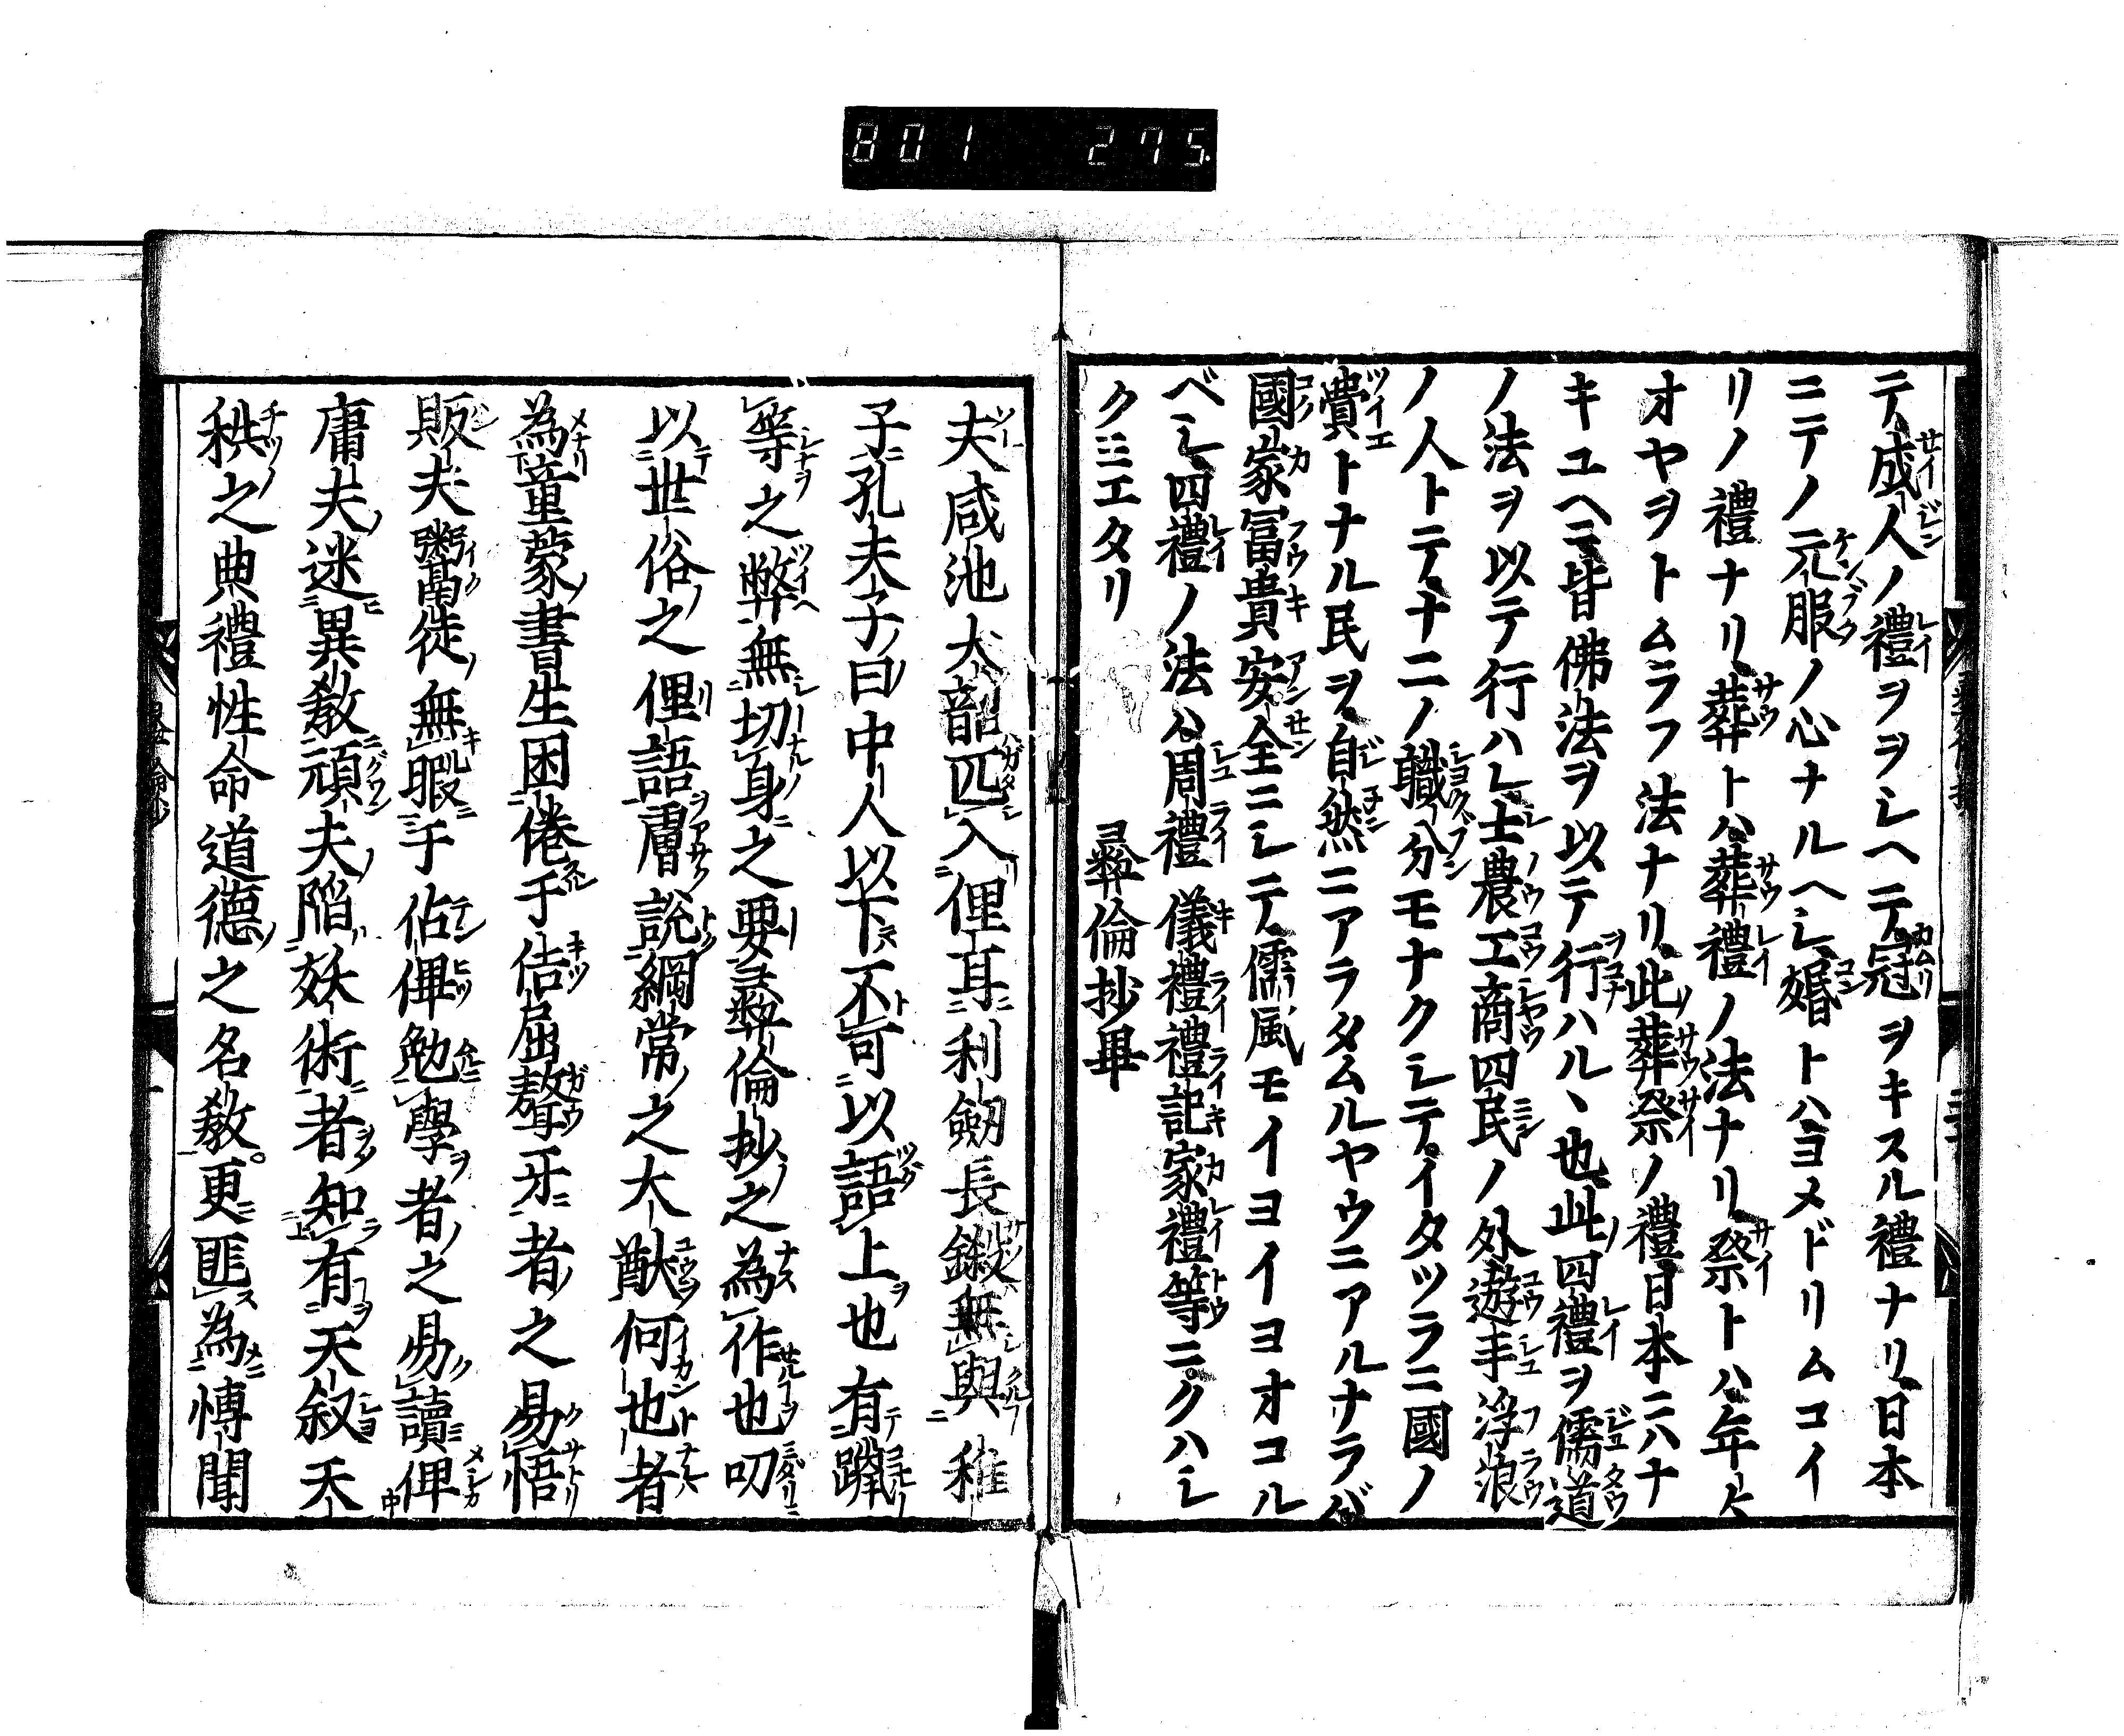 801 275
テ、成人ノ禮ヲヲシヘテ、冠ヲキスル禮ナリ、日本
ニテノ元服ノ心ナルヘシ、婚トハヨメドリムコイ
リノ禮ナリ、葬トハ葬禮ノ法ナリ、祭トハ年々
オヤヲトムラフ法ナリ、此葬祭ノ禮日本ニハナ
キユヘニ皆佛法ヲ以テ行ハルヽ也、此四禮ヲ儒道
ノ法ヲ以テ行ハレ士農工商四民ノ外遊手浮浪
ノ人トテ、ナニノ職分モナクシテ、イタツラニ國ノ
費トナル民ヲ、自然ニアラタムルヤウニアルナラバ
國家冨貴安全ニシテ、儒風モイヨイヨオコル
ベシ、四禮ノ法ハ周禮儀禮禮記家禮等ニ、クハシ
クミエタリ
彝倫抄畢
夫咸池大韶匹入俚耳利劔長鎩無與稚
子孔夫子曰中人以下不可以語上也有躐
等之弊無切身之要彝倫抄之為作也叨
以世俗之俚語膚說綱常之大猷何也者
為童蒙書生困倦于佶屈聱牙者之易悟
販夫鬻徒無暇于佔俾勉學者之易讀俾
庸夫迷異教頑夫陷妖術者知有天叙天
秩之典禮性命道德之名教更匪為慱聞